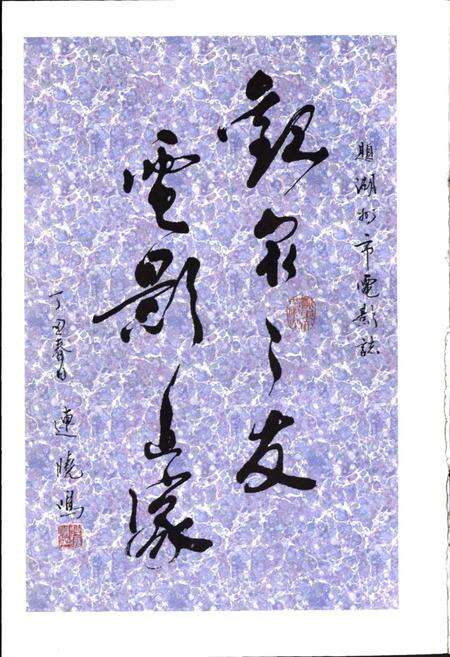 題湖州市電影誌
觀眾之友
電影之家
丁丑春日 連曉鳴